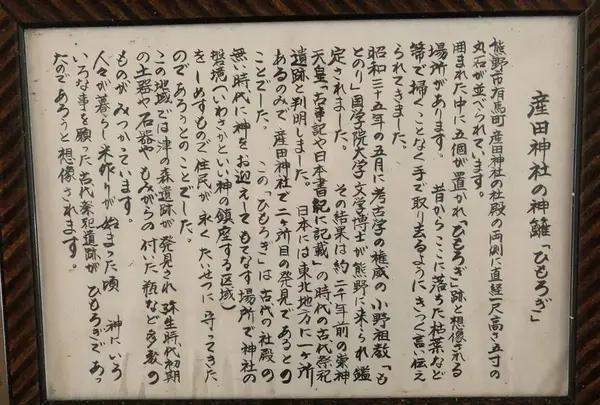 産田神社の神籬「ひもろぎ」
熊野市有馬町産田神社の社殿の両側に直経一尺、高さ五寸の
丸石が並べられています。
囲まれた中に五個が置かれ「ひもろぎ」跡と想像される
場所があります。 昔からここに落ちた枯葉など
箒で掃くことなく手で取り去るようにきつく言い伝え
られてきました。
昭和三十五年の五月に考古学の権威の小野祖教「も
とのり」国学院大学文学博士が熊野に来られ鑑
定されました。 その結果は約二千年前の崇神
天皇「古事記や日本書記に記載」の時代の古代祭祀
遺跡と判明しました。 日本には東北地方に一ヶ所
あるのみで、産田神社で二ヶ所目の発見であるとの
ことでした。 この「ひもろぎ」は古代の社殿の
無い時代に神をお迎えしてもてなす場所で神社の
磐境(いわさかといい神の鎮座する区域)
をしめすもので住民が永くたいせつに守ってきた
のであろうとのことでした。
この地域では津の森遺跡が発見され弥生時代初期
の土器や石器やもみがらの付いた瓶など多数の
ものがみつかっています。
人々が暮らし米作りが始まった頃 神にいろ
いろな事を願った古代祭祀遺跡がひもろぎであっ
たのであろうと想像されます。